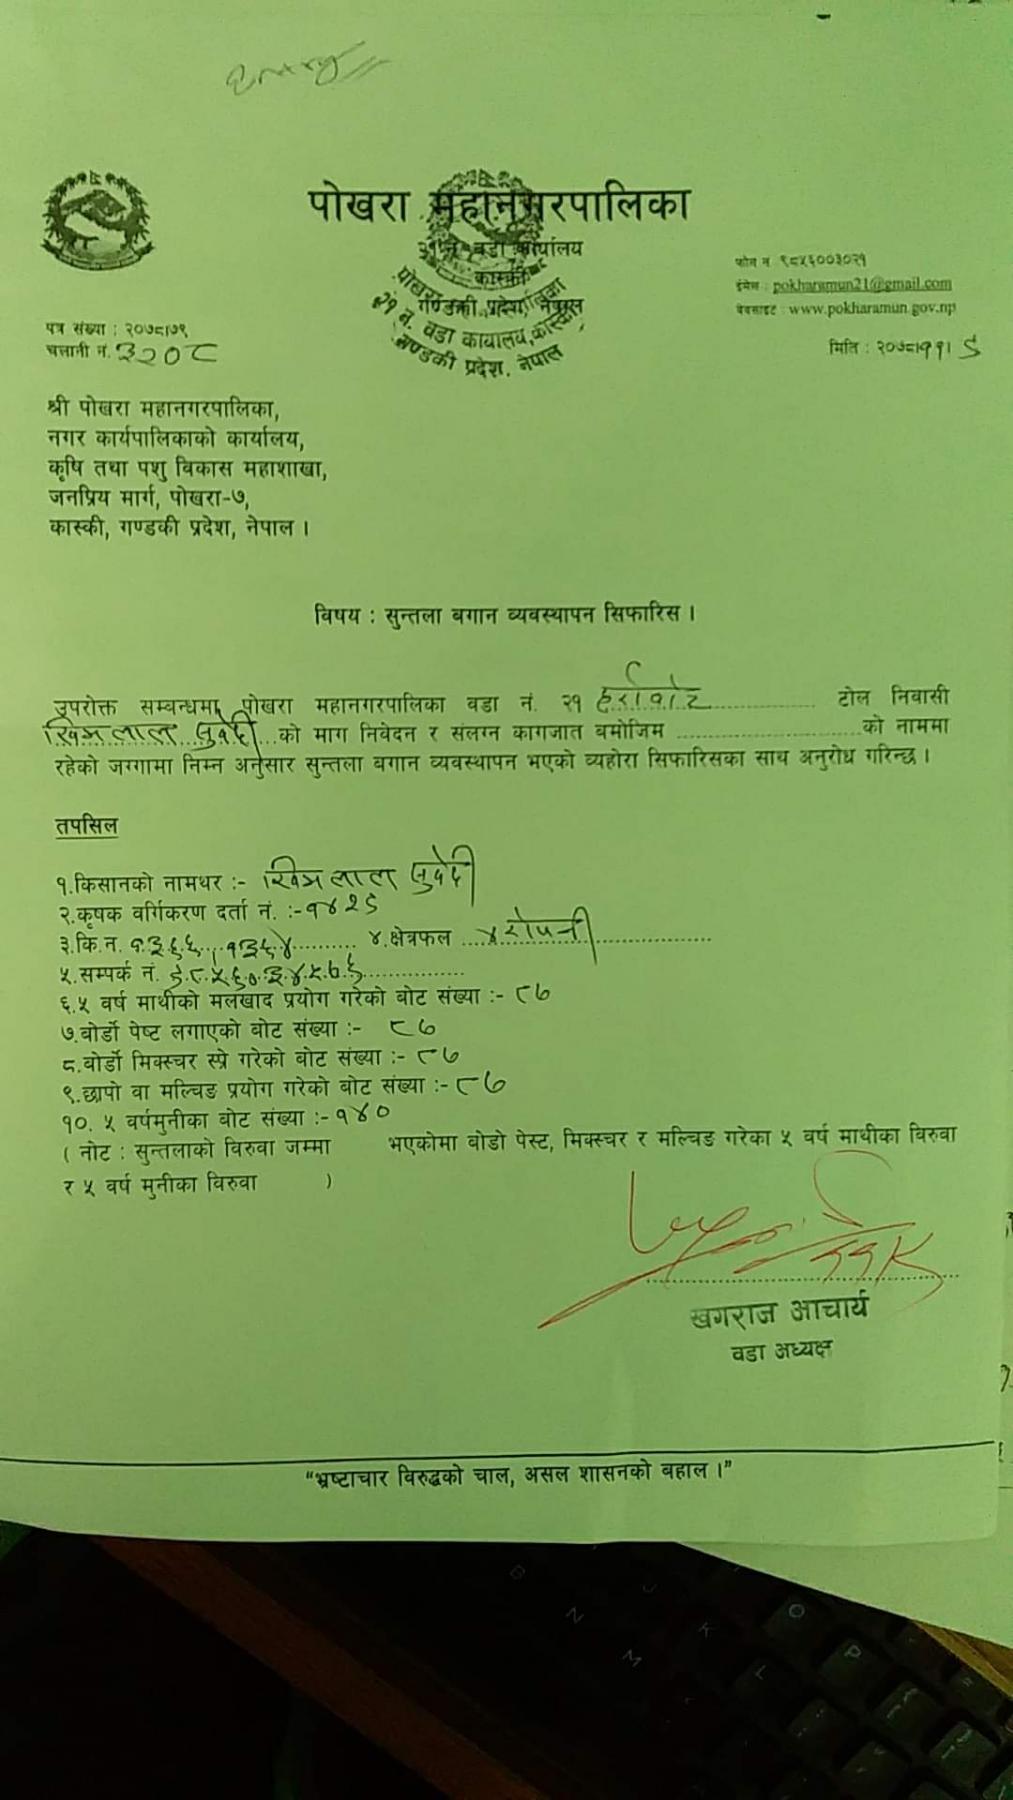 पोखरा महानगरपालिका
२१ नं. वडा कार्यालय
कास्की
गण्डकी प्रदेश, नेपाल
पोखरा महानगरपालिका
२१ नं. वडा कार्यालय, कास्की
गण्डकी प्रदेश, नेपाल
फोन नं ९८५६००३०२१
ईमेल : pokharamun21@gmail.com
वेवसाइट : www.pokharamun.gov.np
पत्र संख्या : २०७८।७९
चलानी नं. ३२०८
मिति : २०७८।११। ९
श्री पोखरा महानगरपालिका,
नगर कार्यपालिकाको कार्यालय,
कृषि तथा पशु विकास महाशाखा,
जनप्रिय मार्ग, पोखरा-७,
कास्की, गण्डकी प्रदेश, नेपाल ।
विषय : सुन्तला बगान व्यवस्थापन सिफारिस ।
उपरोक्त सम्बन्धमा पोखरा महानगरपालिका वडा नं. २१ टोल निवासी
खिमलाल सुवेदी को माग निवेदन र संलग्न कागजात बमोजिम ........................ को नाममा
रहेको जग्गामा निम्न अनुसार सुन्तला बगान व्यवस्थापन भएको व्यहोरा सिफारिसका साथ अनुरोध गरिन्छ ।
तपसिल
१.किसानको नामथर :- खिमलाल सुवेदी
२.कृषक वर्गिकरण दर्ता नं. :-१४२९
३.कि.न. १३६६, १३६४ ४.क्षेत्रफल ४ रोपनी
५.सम्पर्क नं. ९८५६०३४५७६
६.५ वर्ष माथीको मलखाद प्रयोग गरेको बोट संख्या :- ८७
७.बोर्डो पेष्ट लगाएको बोट संख्या :- ८७
८.बोर्डो मिक्स्चर स्प्रे गरेको बोट संख्या :- ८७
९.छापो वा मल्चिङ प्रयोग गरेको बोट संख्या :- ८७
१०. ५ वर्षमुनीका बोट संख्या :- १४०
( नोट : सुन्तलाको विरुवा जम्मा भएकोमा बोडो पेस्ट, मिक्स्चर र मल्चिङ गरेका ५ वर्ष माथीका विरुवा
र ५ वर्ष मुनीका विरुवा )
खगराज आचार्य
वडा अध्यक्ष
“भ्रष्टाचार विरुद्धको चाल, असल शासनको बहाल ।”
B N M J K L O P